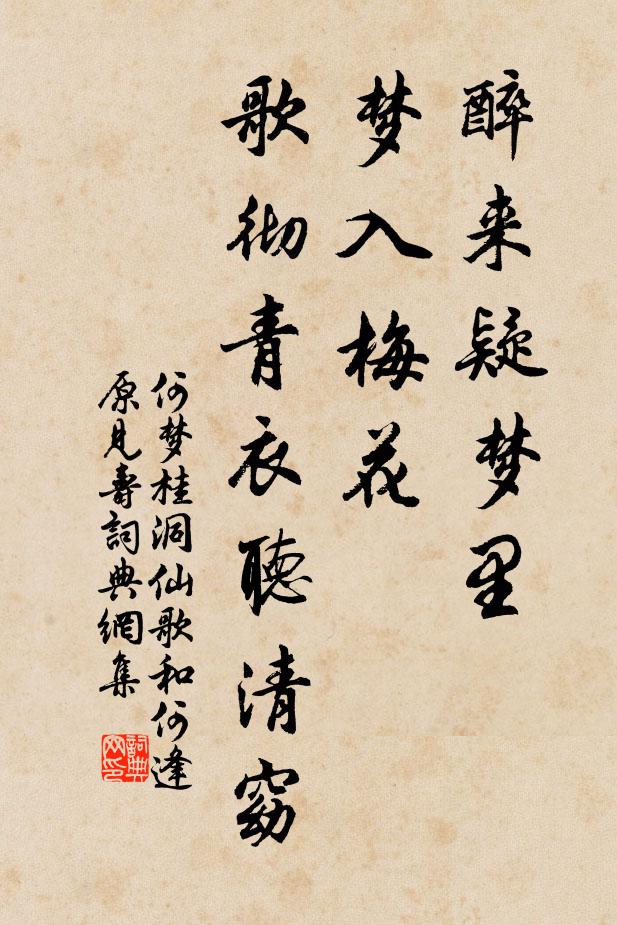 醉来疑梦里
梦入梅花
歌彻青衣聽清窈
何梦桂洞仙歌和何逢
原見壽詞典網集
詞典
网印